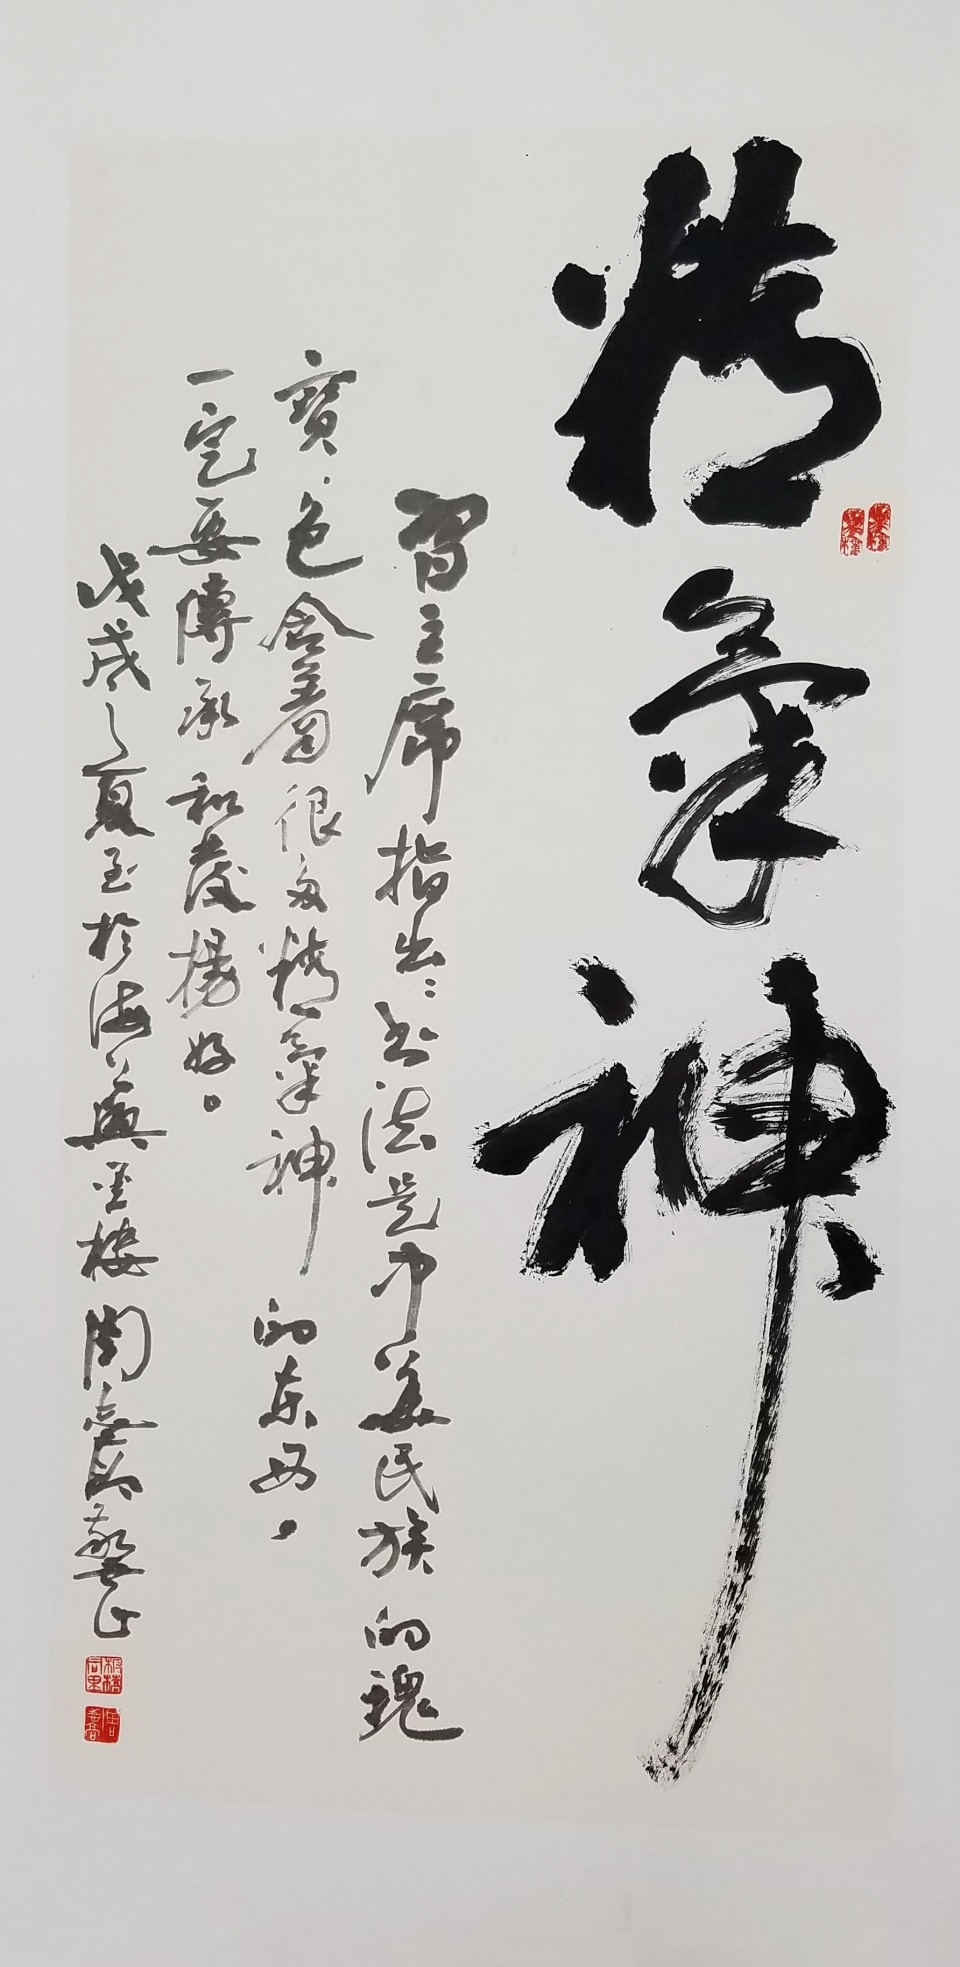 精氣神
習主席指出：书法是中華民族的瑰
寶，包含着很多精氣神的东西，
一定要傳承和發揚好。
戊戌之夏至於海